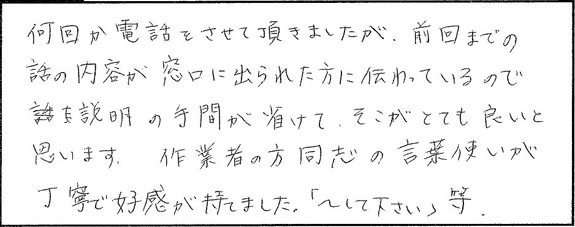 何回か電話をさせて頂きましたが、前回までの
話の内容が窓口に出られた方に伝わっているので
話を説明の手間が省けて、そこがとても良いと
思います。作業者の方同志の言葉使いが
丁寧で好感が持てました。「〜して下さい」等。